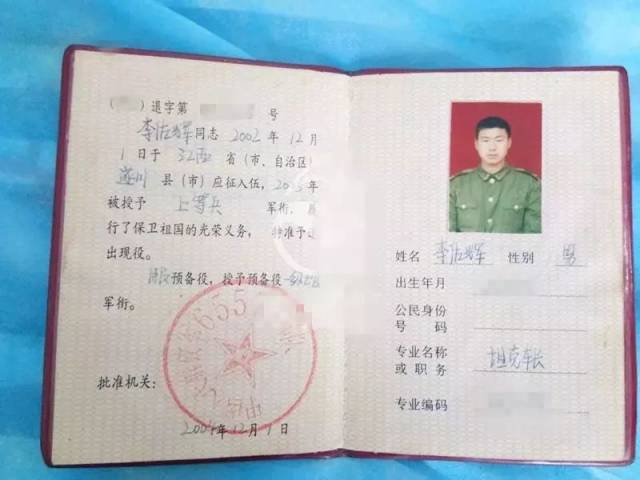 退字第 号
李佐辉同志 2002年12月
1日于 江西 省(市、自治区)
遂川 县(市)应征入伍,200 年
被授予 上等兵 军衔,
行了保卫祖国的光荣义务,特准予退
出现役。
服预备役,授予预备役
军衔。
批准机关:
2004年12月1日
姓名 李佐辉 性别 男
出生年月
公民身份
号码
专业名称
或职务 坦克车长
专业编码